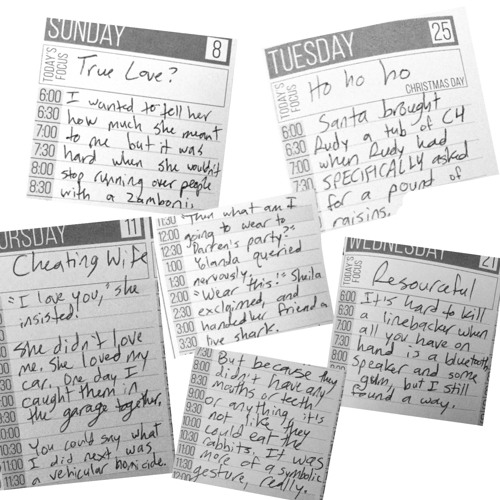 SUNDAY 8
TODAY'S FOCUS
True Love?
6:00 I wanted to tell her
6:30 how much she meant
7:00 to me but it was
7:30 hard when she wouldn't
8:00 stop running over people
8:30 with a Zamboni.
TUESDAY 25
TODAY'S FOCUS
Ho ho ho
CHRISTMAS DAY
6:00 Santa brought
6:30 Rudy a tub of C4
7:00 when Rudy had
7:30 SPECIFICALLY asked
for a pound of
raisins.
URSDAY 11
Cheating Wife
"I love you," she
insisted.
She didn't love
me. She loved my
car. One day I
caught them in
the garage together.
You could say what
I did next was
a vehicular homicide.
11:30 "Then what am I
12:00 going to wear to
12:30 Darren's party?"
1:00 Yolanda queried
1:30 nervously.
2:00 "Wear this!" Sheila
2:30 exclaimed, and
3:00 handed her friend a
3:30 live shark.
7:30 But because they
8:00 didn't have any
8:30 mouths or teeth
9:00 or anything, it's
9:30 not like they
10:00 could eat the
10:30 rabbits. It was
11:00 more of a symbolic
11:30 gesture, really.
WEDNESDAY 21
TODAY'S FOCUS
Resourceful
6:00 It's hard to kill
6:30 a linebacker when
7:00 all you have on
7:30 hand is a bluetooth
8:00 speaker and some
8:30 gum, but I still
9:00 found a way.